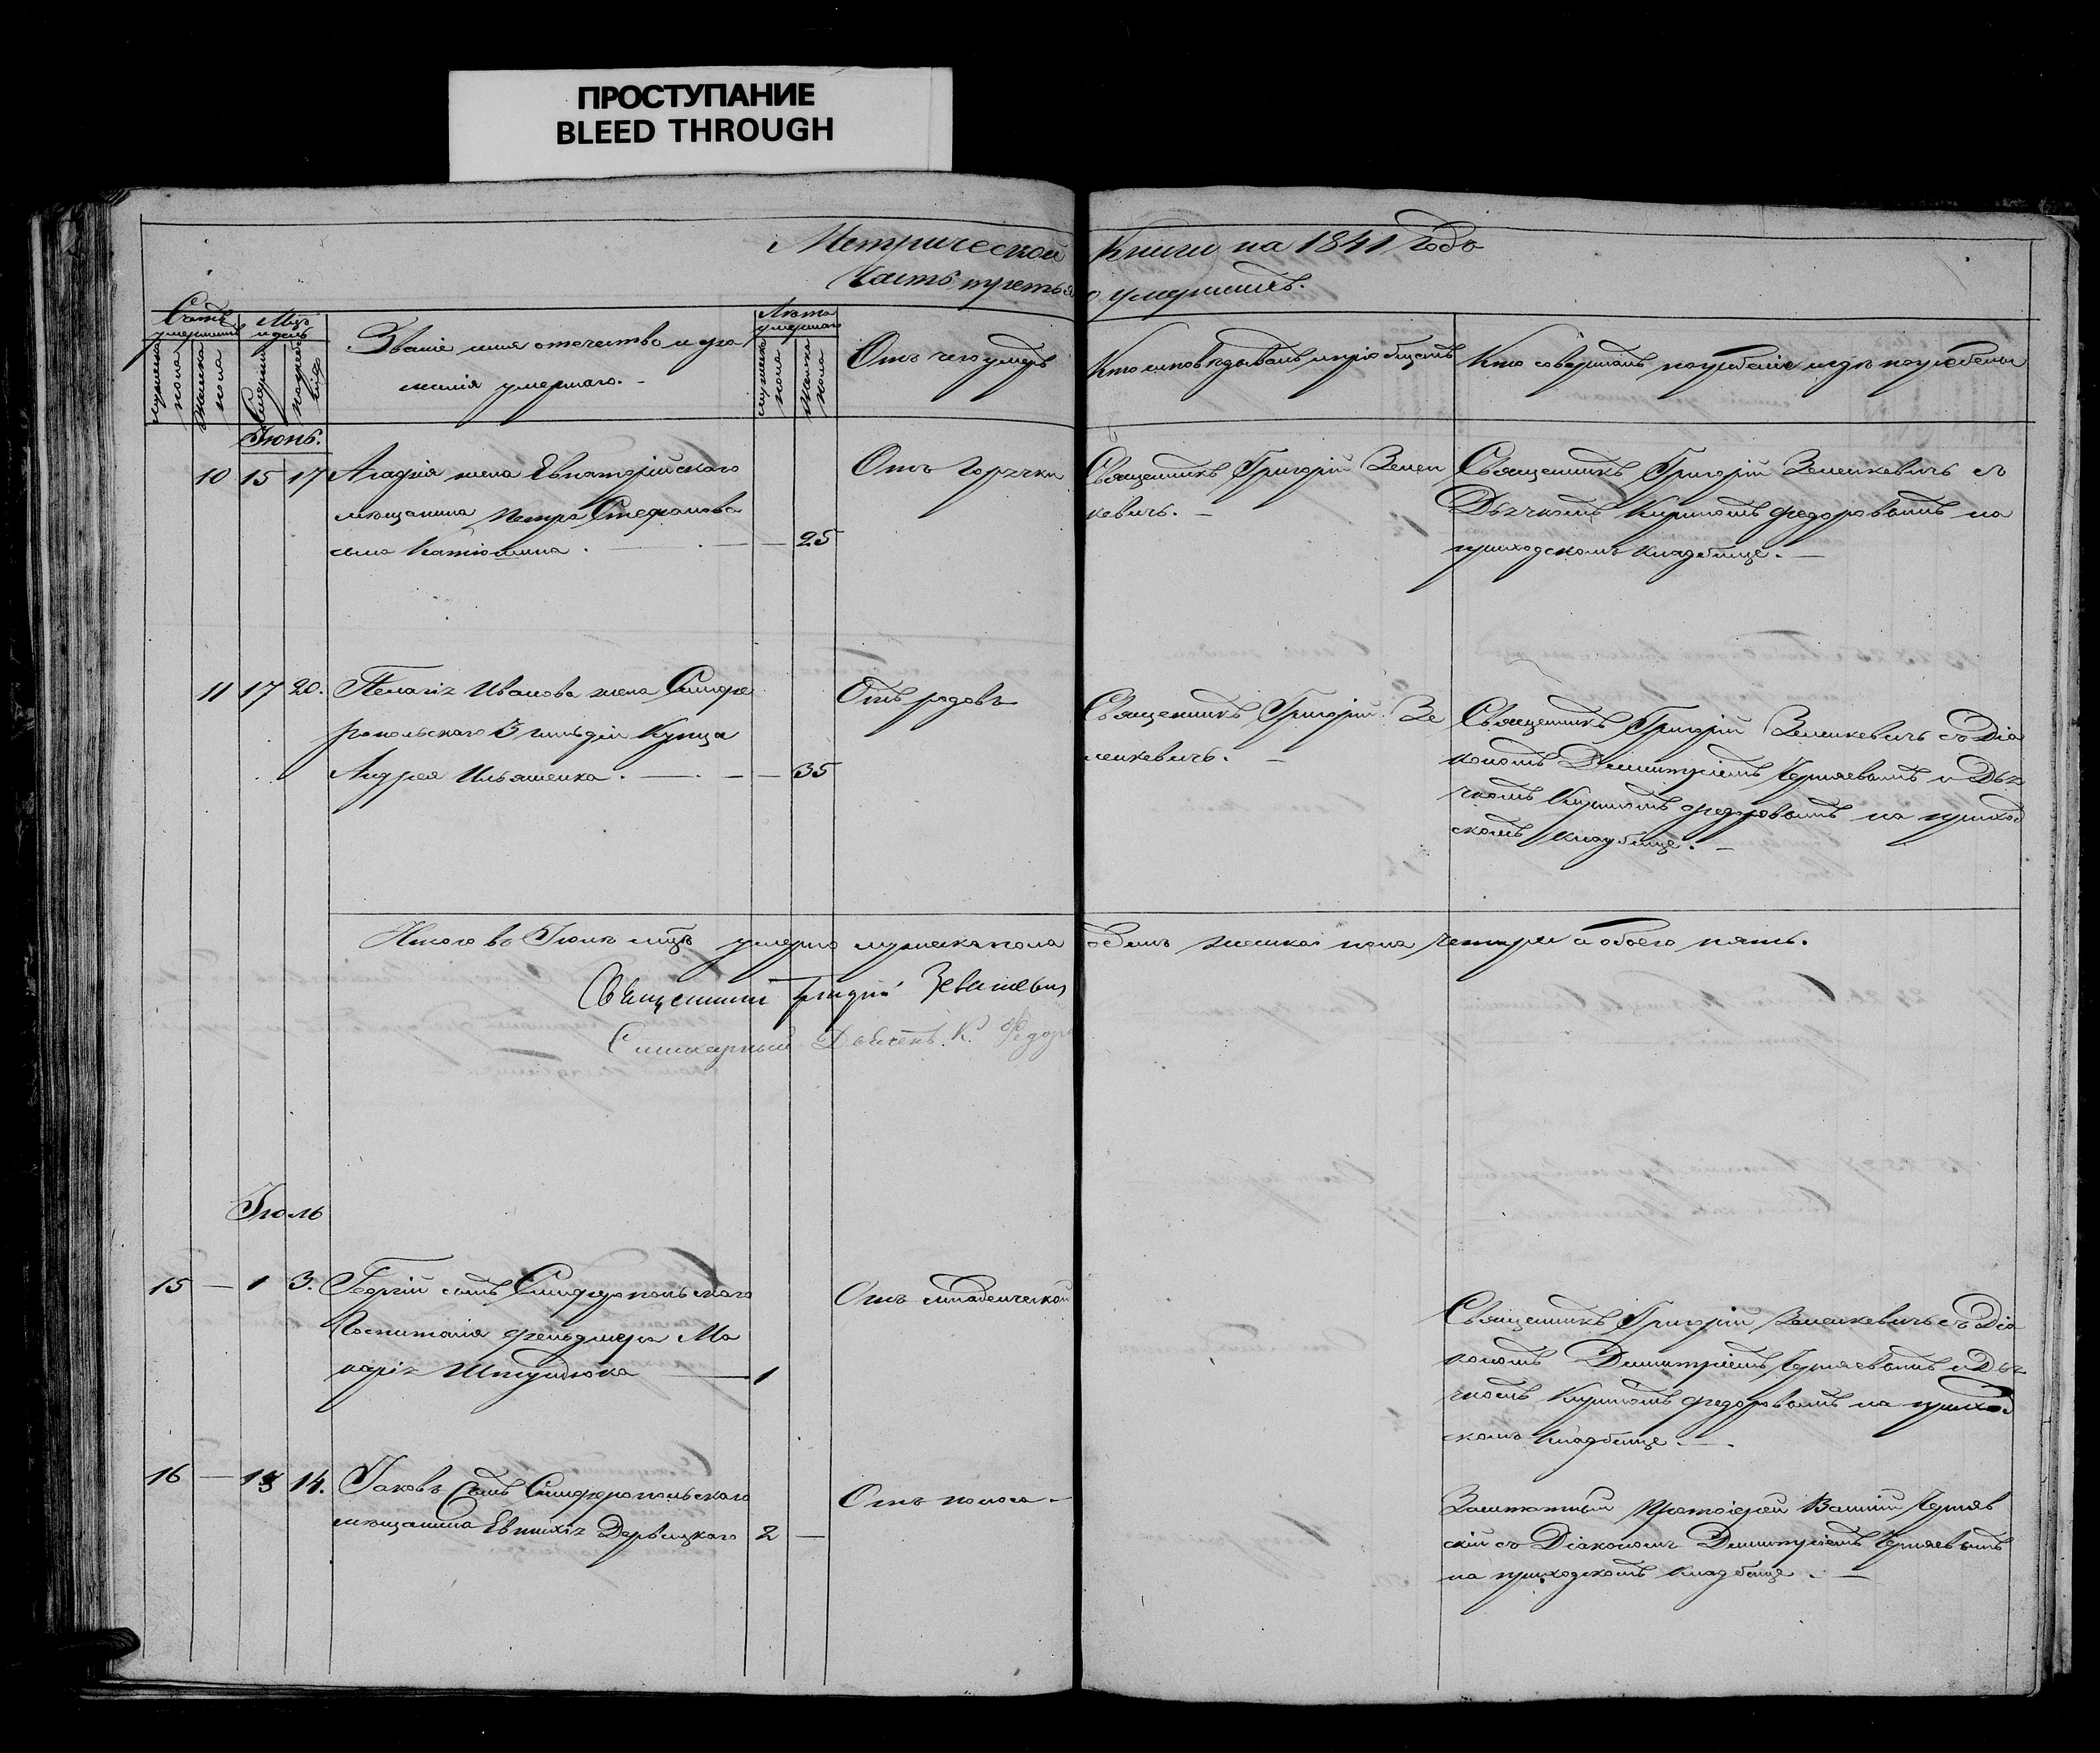 ПРОСТУПАНИЕ
BLEED THROUGH
Метрической Книги на 1841 Годъ
Часть третья о умершихъ.
Счетъ умершихъ
мужеска пола
женска пола
Мцъ и день
Смерти
погребенія
Званіе имя отечество и фа
милія умершаго.
Лѣта умершаго
мужеска пола
женска пола
Отъ чего умеръ
Кто исповѣдывалъ и пріобщалъ
Кто совершалъ погребеніе и гдѣ погребены
Іюнь.
10 15 17 Агафія жена Евпаторійскаго
мещанина Петра Стефанова
сына 25
Отъ горячки
Священникъ Григорій Зелен
кевичъ.
Священникъ Григорій Зеленкевичъ съ
Дьячкомъ Федоровымъ на
приходскомъ кладбище.
11 17 20. Пелагія Иванова жена Симфе
ропольскаго 3 гильдіи Купца
Андрея Ильяшенка. 35
Отъ родовъ
Священникъ Григорій Зе
ленкевичъ.
Священникъ Григорій Зеленкевичъ съ Діа
кономъ Димитріемъ Чернявскимъ и Дья
чкомъ Федоровымъ на приход
скомъ кладбище.
Итого въ Іюнѣ мцѣ умерло мужеска пола одинъ женска пола четыре а обоего пять.
Священникъ Григорій Зеленкевич
Дьячекъ К. Федоро
Іюль
15 — 1 3. Георгій сынъ Симферопольскаго
Госпиталя фельдшера Ма
карія 1
Отъ младенческой
Священникъ Григорій Зеленкевичъ съ Діа
кономъ Димитріемъ Чернявскимъ и Дья
чкомъ Федоровымъ на приход
скомъ кладбище.
16 — 13 14. Іаковъ Сынъ Симферопольскаго
мещанина Евтихія 2 —
Отъ поноса
Заштатный Протоіерей Чернев
скій съ Діакономъ Димитріемъ Чернявскимъ
на приходскомъ кладбище.